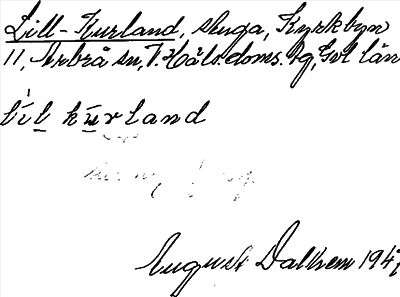 Lill-Kurland, stuga, Kyrkbyn
11, Arbrå sn, V. Häls. doms. tg, Gvl län
lil kurland
August Dalhem 1947